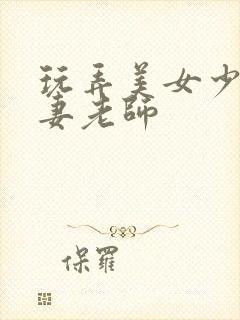 玩弄美女少
妻老師
保羅